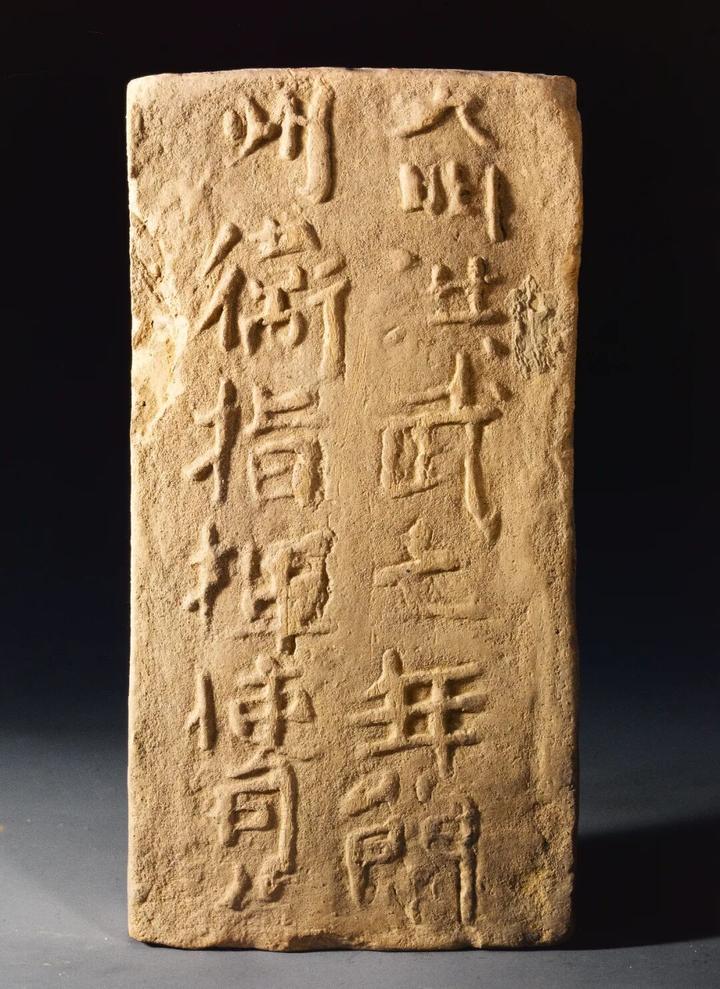 大明洪武七年蘭
州衛指揮使司